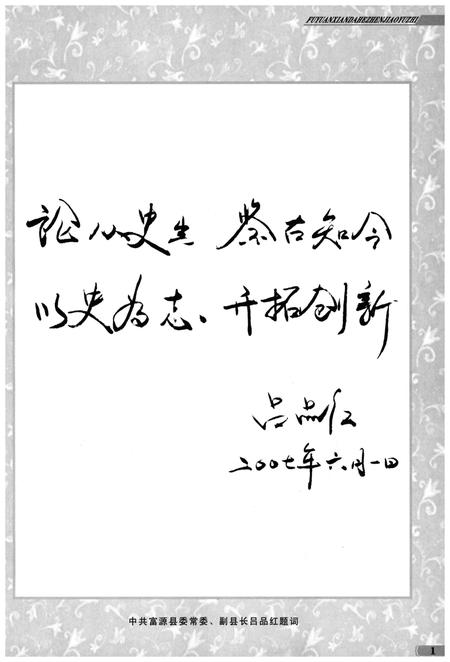 FUYUANXIANDAHEZHENJIAOYUZHI
论从史生 鉴古知今
以史为志、开拓创新
吕品红
二〇〇七年六月一日
中共富源县委常委、副县长吕品红题词
1